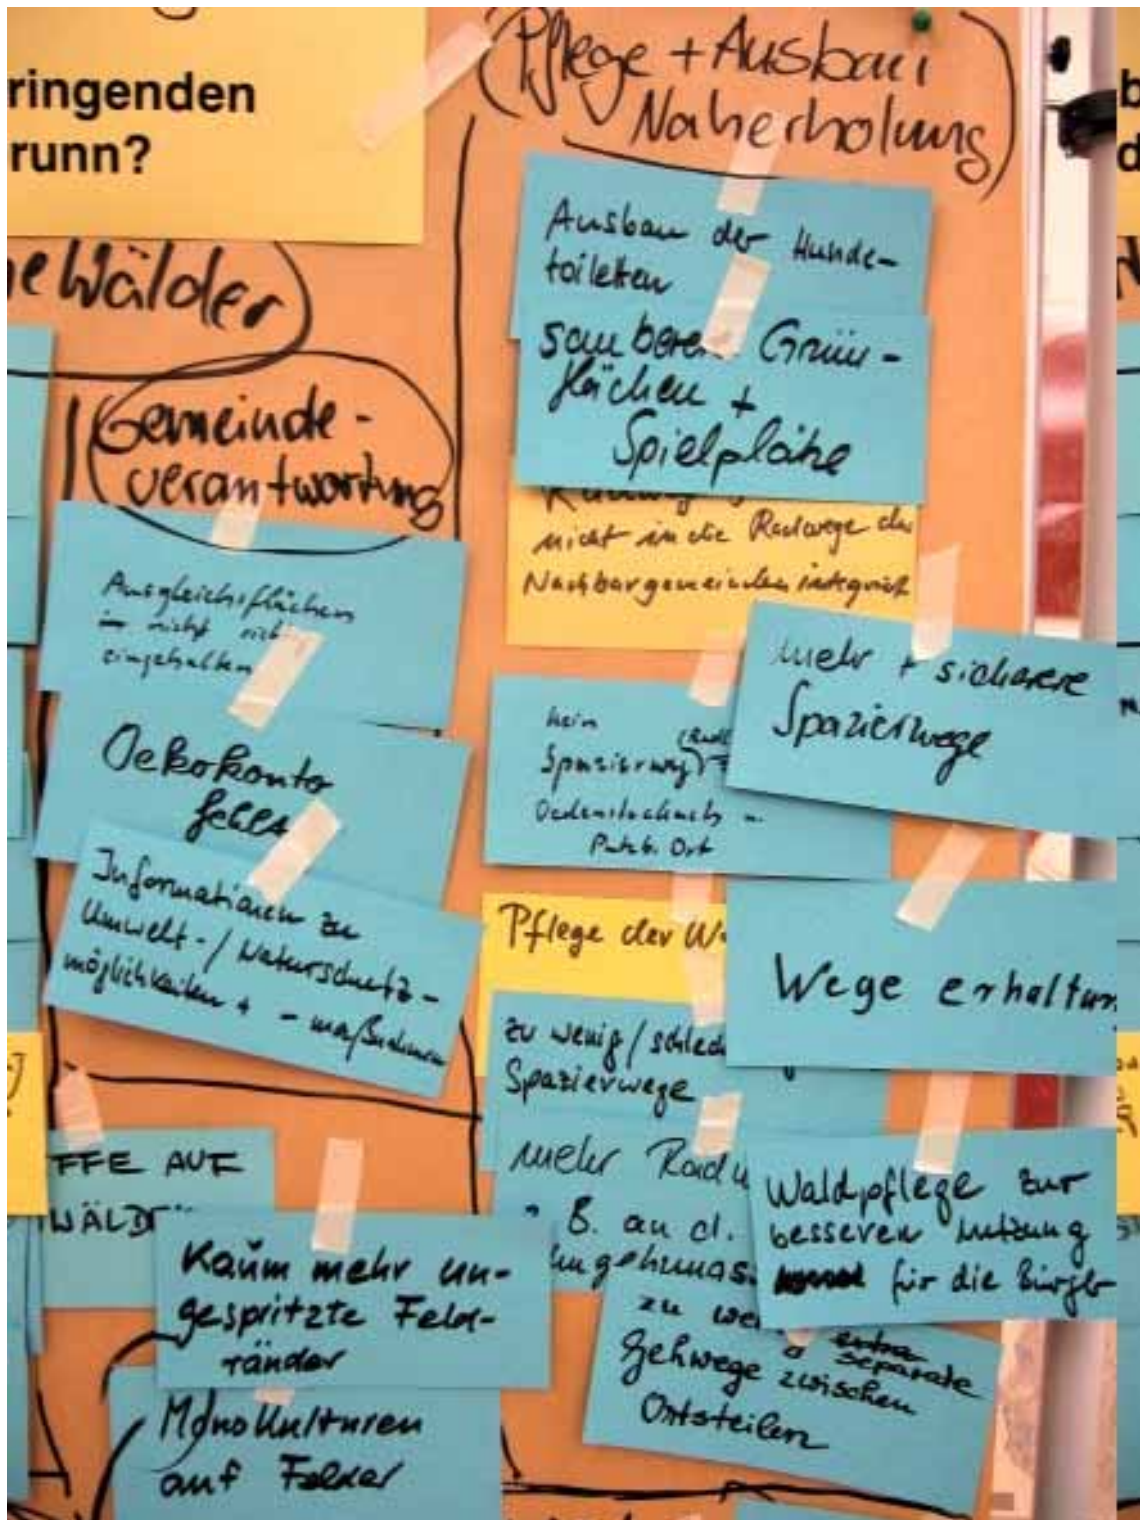 ringenden
runn?
Wälder
Gemeinde-
verantwortung
Ausgleichsflächen
nicht
eingehalten
Oekokonto
fehlt
Informationen zu
Umwelt-/Naturschutz-
möglichkeiten + -maßnahmen
FFE AUF
WÄLD
Kaum mehr un-
gespritzte Feld-
ränder
Monokulturen
auf Felder
(Pflege + Ausbau
Naherholung)
Ausbau der Hunde-
toiletten
saubere Grün-
flächen +
Spielplätze
nicht in die Radwege der
Nachbargemeinden integriert
mehr + sicherere
Spazierwege
kein
Spazierweg
Oedenstockach
Putzb. Ort
Pflege der W
Wege erhalten
zu wenig/schlec
Spazierwege
mehr Rad
B. an d.
Waldpflege zur
besseren Nutzung
für die Bürger
zu we
separate
Gehwege zwischen
Ortsteilen